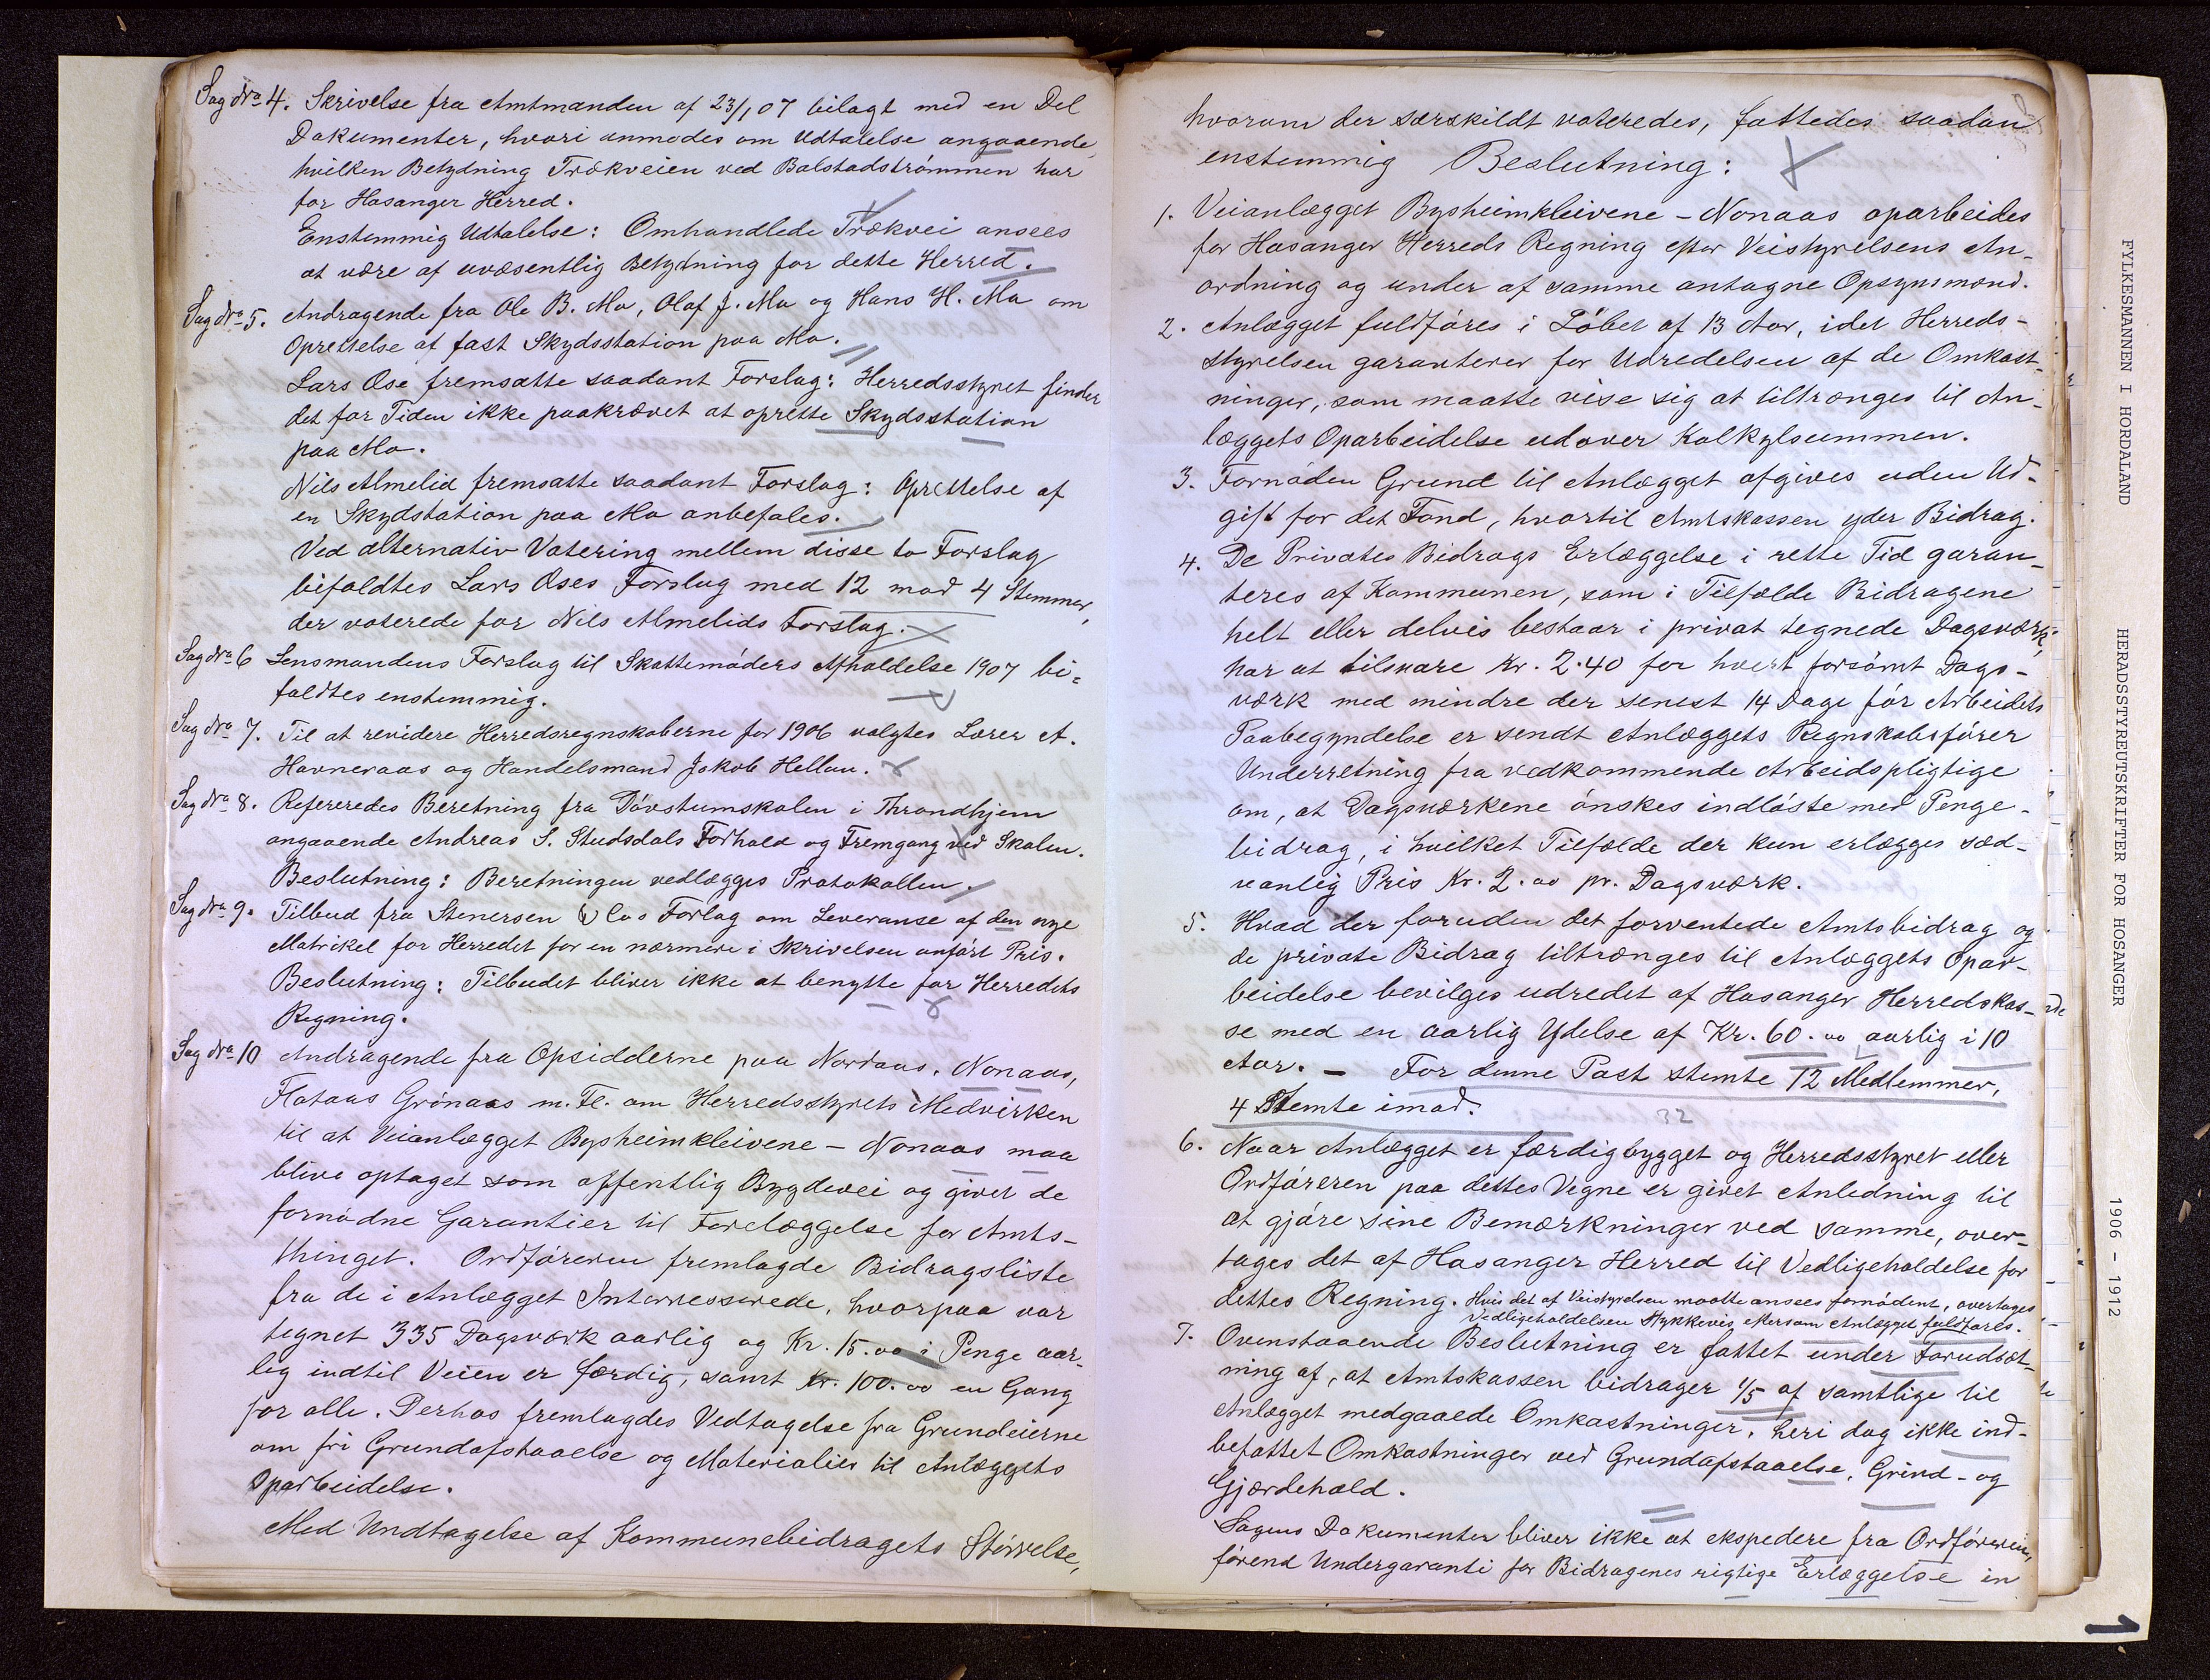 Sag No 4. Skrivelse fra Amtmanden af 23/1 07 bilagt med en Del
Dokumenter, hvori anmodes om Udtalelse angaaende,
hvilken Betydning Trækveien ved Bolstadstrømmen har
for Hosanger Herred.
Enstemmig Udtalelse: Omhandlede Trækvei ansees
at være af uvæsentlig Betydning for dette Herred.
Sag No 5. Andragende fra Ole B. Mo, Olaf J. Mo og Hans H. Mo om
Oprettelse af fast Skydsstation paa Mo.
Lars Øse fremsatte saadant Forslag: Herredsstyret finder
det for Tiden ikke paakrævet at oprette Skydsstation
paa Mo.
Nils Almelid fremsatte saadant Forslag: Oprettelse af
en Skydstation paa Mo anbefales.
Ved alternativ Votering mellem disse to Forslag
bifaldtes Lars Øses Forslag med 12 mod 4 Stemmer,
der voterede for Nils Almelids Forslag.
Sag No 6 Lensmandens Forslag til Skattemøders Afholdelse 1907 bi=
faldtes enstemmig.
Sag No 7. Til at revidere Herredsregnskaberne for 1906 valgtes Lærer A.
Havneraas og Handelsmand Jakob Helland.
Sag No 8. Refereredes Beretning fra Døvstumskolen i Throndhjem
angaaende Andreas S. Studsdals Forhold og Fremgang ved Skolen.
Beslutning: Beretningen vedlægges Protokollen.
Sag No 9. Tilbud fra Stenersen & Cos Forlag om Leveranse af den nye
Matrikel for Herredet for en nærmere i Skrivelsen anført Pris.
Beslutning: Tilbudet bliver ikke at benytte for Herredets
Regning.
Sag No 10 Andragende fra Opsidderne paa Nordaas, Nonaas,
Flataas Grønaas m. Fl. om Herredsstyrets Medvirken
til at Veianlægget Bysheimkleivene - Nonaas maa
blive optaget som offentlig Bygdevei og givet de
fornødne Garantier til Forelæggelse for Amts-
thinget. Ordføreren fremlagde Bidragsliste
fra de i Anlægget Interesserede, hvorpaa var
tegnet 335 Dagsværk aarlig og Kr. 15.00 i Penge aar-
lig indtil Veien er færdig, samt Kr. 100.00 en Gang
for alle. Derhos fremlagdes Vedtagelse fra Grundeierne
om fri Grundafstaaelse og Materialier til Anlæggets
Oparbeidelse.
Med Undtagelse af Kommunebidragets Størrelse,
hvorom der særskildt voteredes, fattedes saadan
enstemmig Beslutning:
1. Veianlægget Bysheimkleivene - Nonaas oparbeides
for Hosanger Herreds Regning efter Veistyrelsens An-
ordning og under af samme antagne Opsynsmænd.
2. Anlægget fuldføres i Løbet af 13 Aar, idet Herreds-
styrelsen garanterer for Udredelsen af de Omkost-
ninger, som maatte vise sig at tiltrænges til An-
læggets Oparbeidelse udover Kalkylsummen.
3. Fornøden Grund til Anlægget afgives uden Ud-
gift for det Fond, hvortil Amtskassen yder Bidrag.
4. De Privates Bidrags Erlæggelse i rette Tid garan-
teres af Kommunen, som i Tilfælde Bidragene
helt eller delvis bestaar i privat tegnede Dagsværk,
har at tilsvare Kr. 2.40 for hvert forsømt Dags-
værk med mindre der senest 14 Dage før Arbeidets
Paabegyndelse er sendt Anlæggets Regnskabsfører
Underretning fra vedkommende Arbeidspligtige
om, at Dagsværkene ønskes indløste med Penge-
bidrag, i hvilket Tilfælde der kun erlægges sæd-
vanlig Pris Kr. 2.00 pr. Dagsværk.
5. Hvad der foruden det forventede Amtsbidrag og
de private Bidrag tiltrænges til Anlæggets Opar-
beidelse bevilges udredet af Hosanger Herredskas-
se med en aarlig Ydelse af Kr. 60.00 aarlig i 10
Aar. - For denne Post stemte 12 Medlemmer,
4 stemte imod.
32
6. Naar Anlægget er færdigbygget og Herredsstyret eller
Ordføreren paa dettes Vegne er givet Anledning til
at gjøre sine Bemærkninger ved samme, over-
tages det af Hosanger Herred til Vedligeholdelse for
dettes Regning. Hvis det af Veistyrelsen maatte ansees fornødent, overtages
Vedligeholdelsen stykkevis, eftersom Anlægget fuldføres.
7. Ovenstaaende Beslutning er fattet under Forudsæt-
ning af, at Amtskassen bidrager 1/5 af samtlige til
Anlægget medgaaede Omkostninger, heri dog ikke ind-
befattet Omkostninger ved Grundafstaaelse, Grind- og
Gjærdehold.
Sagens Dokumenter bliver ikke at ekspedere fra Ordføreren,
førend Undergaranti for Bidragenes rigtige Erlæggelse in
FYLKESMANNEN I HORDALAND
HERADSSTYREUTSKRIFTER FOR HOSANGER
1906 - 1912
1